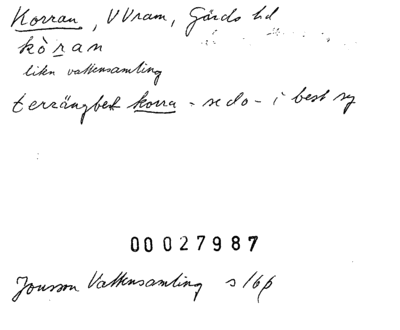 Korran, V Vram, Gärds hd
kòran
liten vattensamling
terrängbet korra - se do - i best sg
00027987
Jonsson Vattensamling s 16